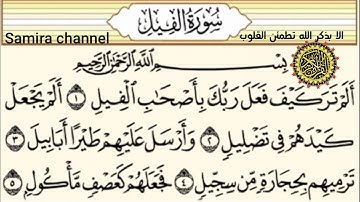 سُورَةُ الْفِيلِ
Samira channel
الا بذكر الله تطمئن القلوب
بِسْمِ اللَّهِ الرَّحْمَٰنِ الرَّحِيمِ
أَلَمْ تَرَ كَيْفَ فَعَلَ رَبُّكَ بِأَصْحَابِ الْفِيلِ ١ أَلَمْ يَجْعَلْ
كَيْدَهُمْ فِي تَضْلِيلٍ ٢ وَأَرْسَلَ عَلَيْهِمْ طَيْرًا أَبَابِيلَ ٣
تَرْمِيهِم بِحِجَارَةٍ مِّن سِجِّيلٍ ٤ فَجَعَلَهُمْ كَعَصْفٍ مَّأْكُولٍ ٥